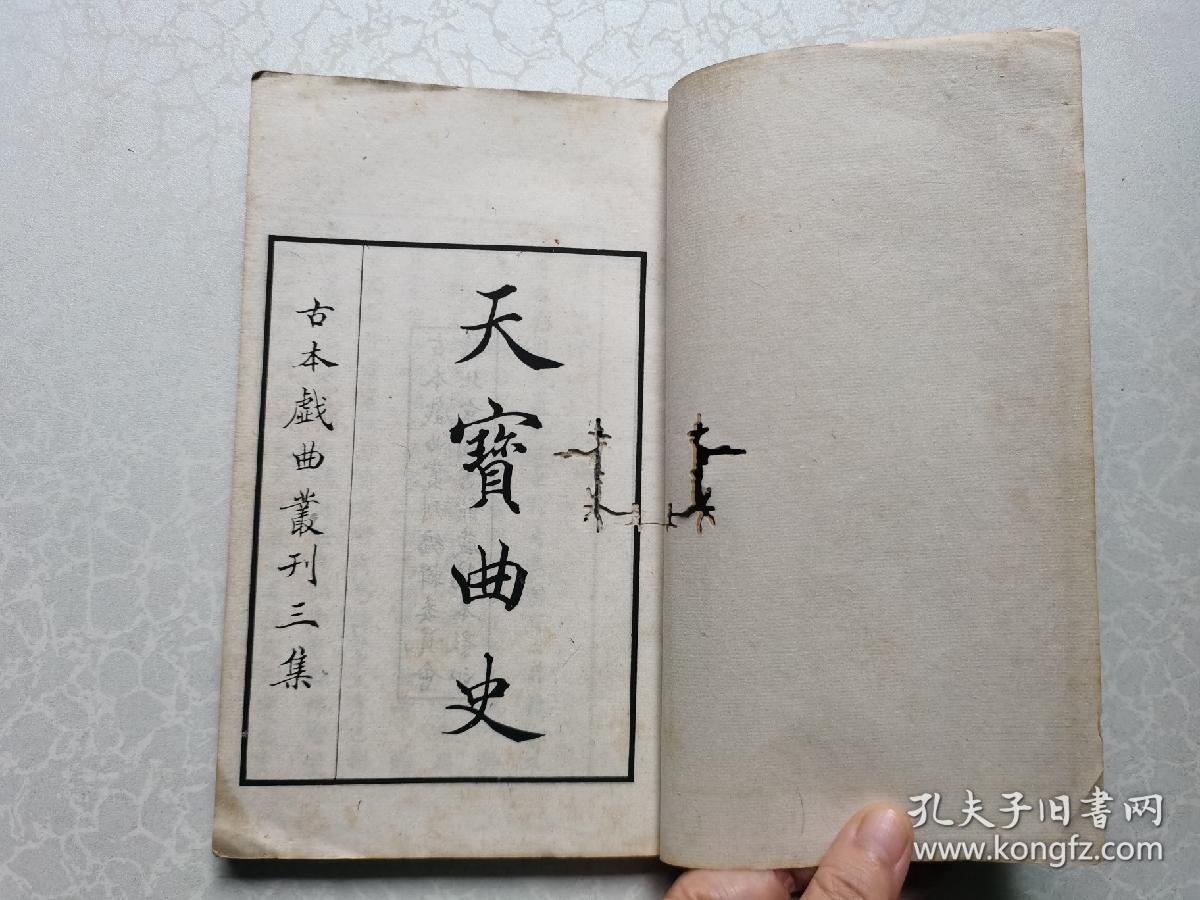 天寶曲史
古本戯曲叢刊三集
孔夫子旧書网
www.kongfz.com